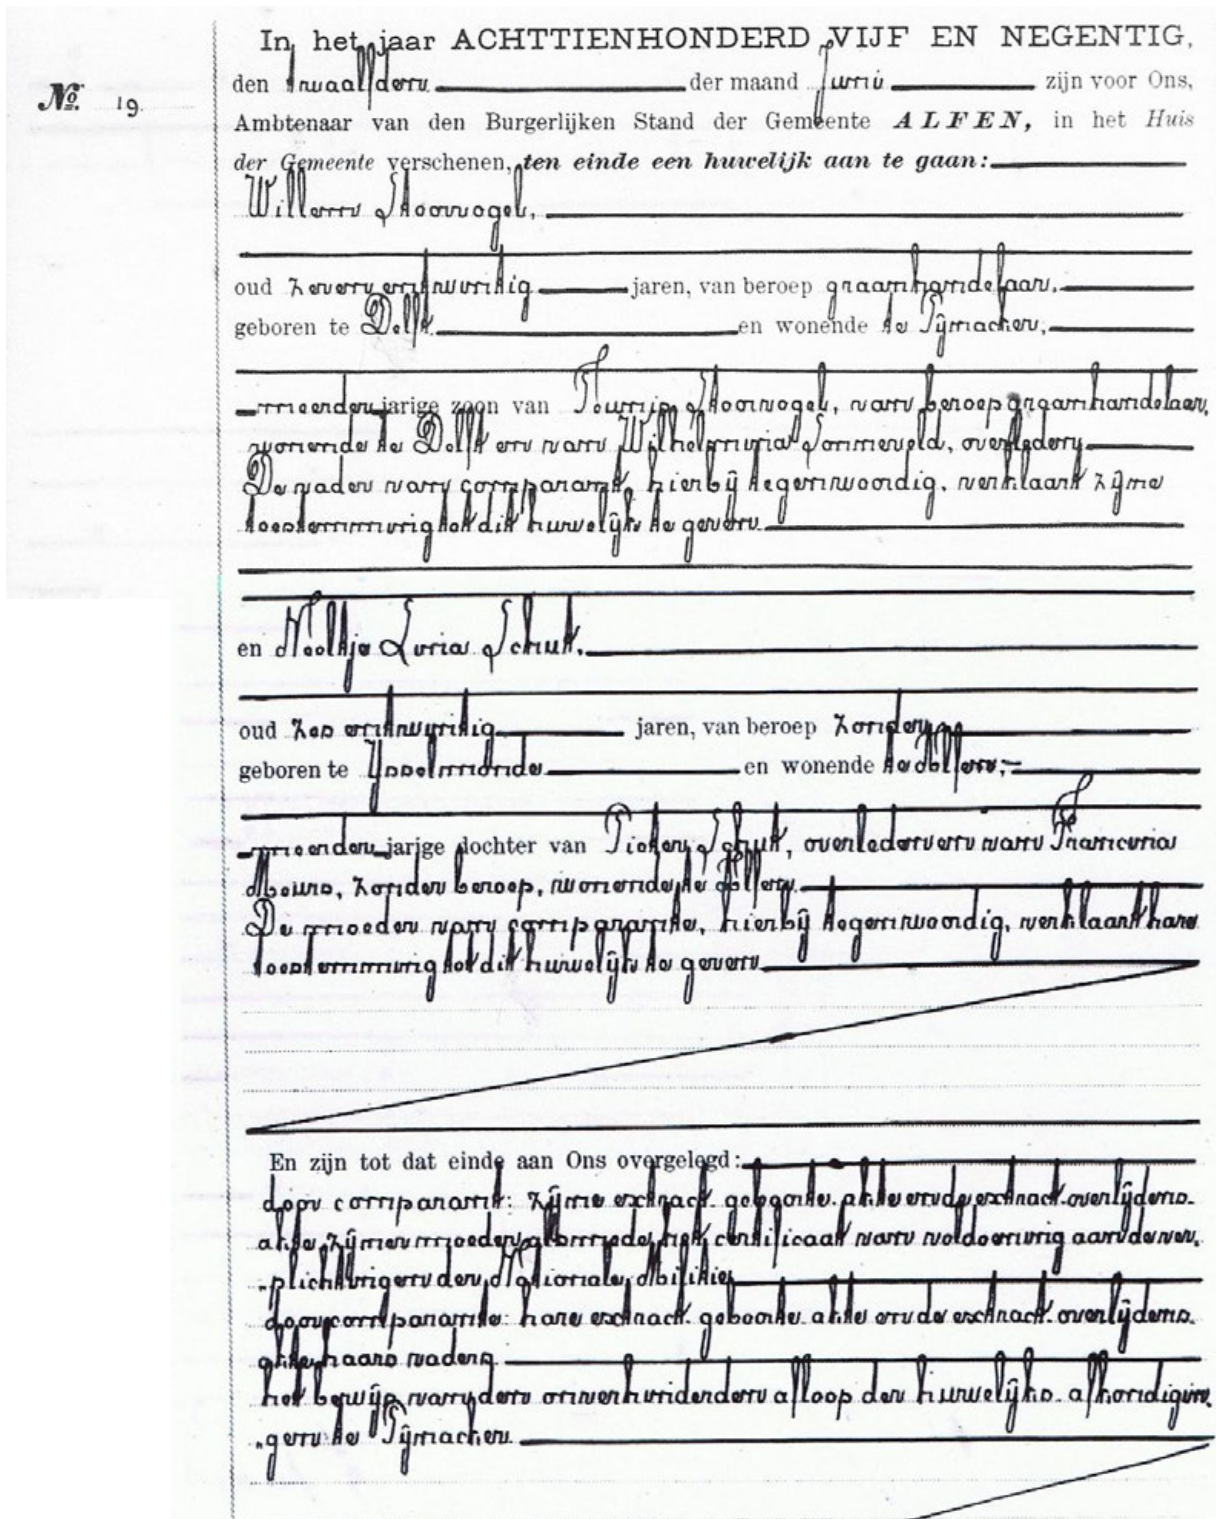 In het jaar ACHTTIENHONDERD VIJF EN NEGENTIG,
den twaalfden der maand Juni zijn voor Ons,
No. 19.
Ambtenaar van den Burgerlijken Stand der Gemeente ALFEN, in het Huis
der Gemeente verschenen, ten einde een huwelijk aan te gaan:
Willem Stoorvogel,
oud zeven en twintig jaren, van beroep graanhandelaar,
geboren te Delft en wonende te Pijnacker,
meerderjarige zoon van Teunis Stoorvogel, van beroep graanhandelaar,
wonende te Delft en van Wilhelmina Sonneveld, overleden.
De vader van comparant, hierbij tegenwoordig, verklaart zijne
toestemming tot dit huwelijk te geven.
en Neeltje Lena Schut,
oud zes en twintig jaren, van beroep zonder,
geboren te IJsselmonde en wonende te Alfen,
meerderjarige dochter van Pieter Schut, overleden en van Francina
Meurs, zonder beroep, wonende te Alfen.
De moeder van comparante, hierbij tegenwoordig, verklaart hare
toestemming tot dit huwelijk te geven.
En zijn tot dat einde aan Ons overgelegd:
door comparant: zijne extract-geboorte-akte en de extract-overlijdens-
akte zijner moeder, alsmede het certificaat van voldoening aan de ver-
„plichtingen der Nationale Militie,
door comparante: hare extract-geboorte-akte en de extract-overlijdens-
akte haars vaders.
het bewijs van den onverhinderden afloop der huwelijks-afkondigin-
„gen te Pijnacker.